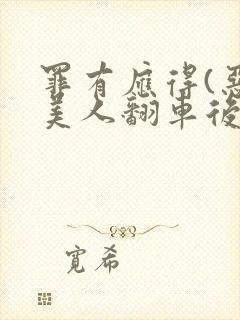 罪有應得(惡
美人翻車後
寬希